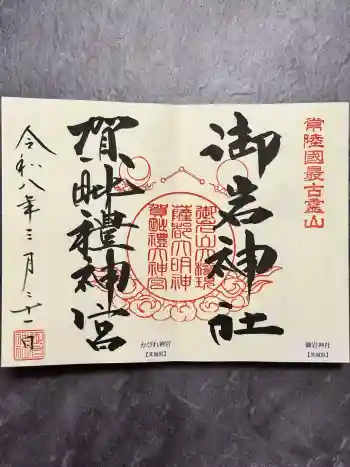 常陸國最古霊山
御岩神社
御岩山大権現
薩都大明神
賀毗禮大神宮
御岩神社
【茨城県】
賀毗禮神宮
かびれ神宮
【茨城県】
令和八年三月二十二日